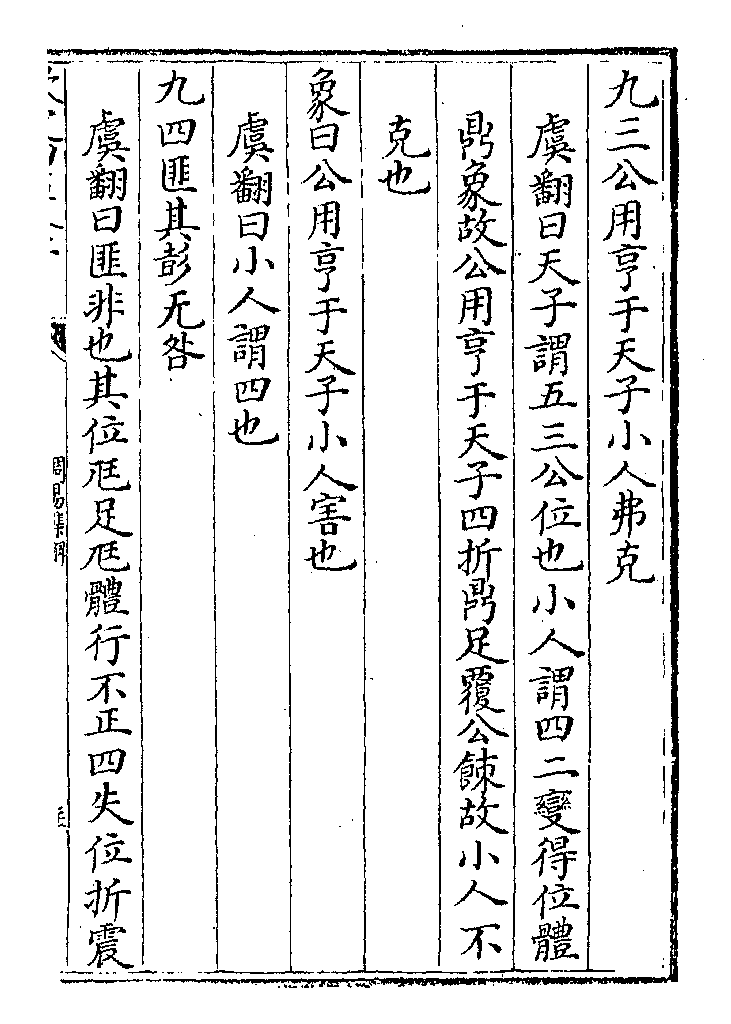 九三公用亨于天子小人弗克
虞翻曰天子謂五三公位也小人謂四二變得位體
鼎象故公用亨于天子四折鼎足覆公餗故小人不
克也
象曰公用亨于天子小人害也
虞翻曰小人謂四也
九四匪其彭无咎
虞翻曰匪非也其位尫足尫體行不正四失位折震
周易集解